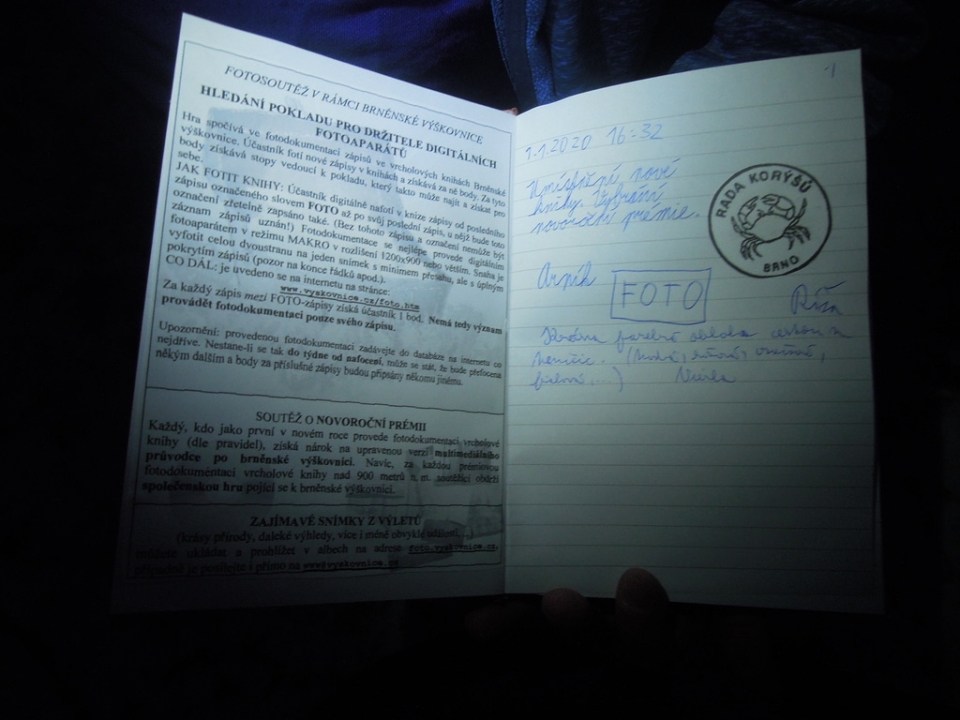 FOTOSOUTĚŽ V RÁMCI BRNĚNSKÉ VÝŠKOVNICE
HLEDÁNÍ POKLADU PRO DRŽITELE DIGITÁLNÍCH
FOTOAPARÁTŮ
Hra spočívá ve fotodokumentaci zápisů ve vrcholových knihách Brněnské
výškovnice. Účastník fotí nové zápisy v knihách a získává za ně body. Za tyto
body získává stopy vedoucí k pokladu, který takto může najít a získat pro
sebe.
JAK FOTIT KNIHY: Účastník digitálně nafotí v knize zápisy od posledního
zápisu označeného slovem FOTO až po svůj poslední zápis, u nějž bude toto
označení zřetelně zapsáno také. (Bez tohoto zápisu a označení nemůže být
záznam zápisů uznán!) Fotodokumentace se nejlépe provede digitálním
fotoaparátem v režimu MAKRO v rozlišení 1200x900 nebo větším. Snaha je
vyfotit celou dvoustranu na jeden snímek s minimem přesahu, ale s úplným
pokrytím zápisů (pozor na konce řádků apod.).
CO DÁL: je uvedeno se na internetu na stránce:
www.vyskovnice.cz/foto.htm
Za každý zápis mezi FOTO-zápisy získá účastník 1 bod. Nemá tedy význam
provádět fotodokumentaci pouze svého zápisu.
Upozornění: provedenou fotodokumentaci zadávejte do databáze na internetu co
nejdříve. Nestane-li se tak do týdne od nafocení, může se stát, že bude přefocena
někým dalším a body za příslušné zápisy budou připsány někomu jinému.
SOUTĚŽ O NOVOROČNÍ PRÉMII
Každý, kdo jako první v novém roce provede fotodokumentaci vrcholové
knihy (dle pravidel), získá nárok na upravenou verzi multimediálního
průvodce po brněnské výškovnici. Navíc, za každou prémiovou
fotodokumentaci vrcholové knihy nad 900 metrů n. m. soutěžící obdrží
společenskou hru pojící se k brněnské výškovnici.
ZAJÍMAVÉ SNÍMKY Z VÝLETŮ
(krásy přírody, daleké výhledy, více i méně obvyklé
můžete ukládat a prohlížet v albech na adrese foto.vyskovnice.cz,
případně je posílejte i přímo na
1
1.1.2020 16:32
Umístění nové
knihy. Vybrání
novoroční prémie.
RADA KORÝŠŮ
BRNO
Arník
FOTO
Růža
Krásna